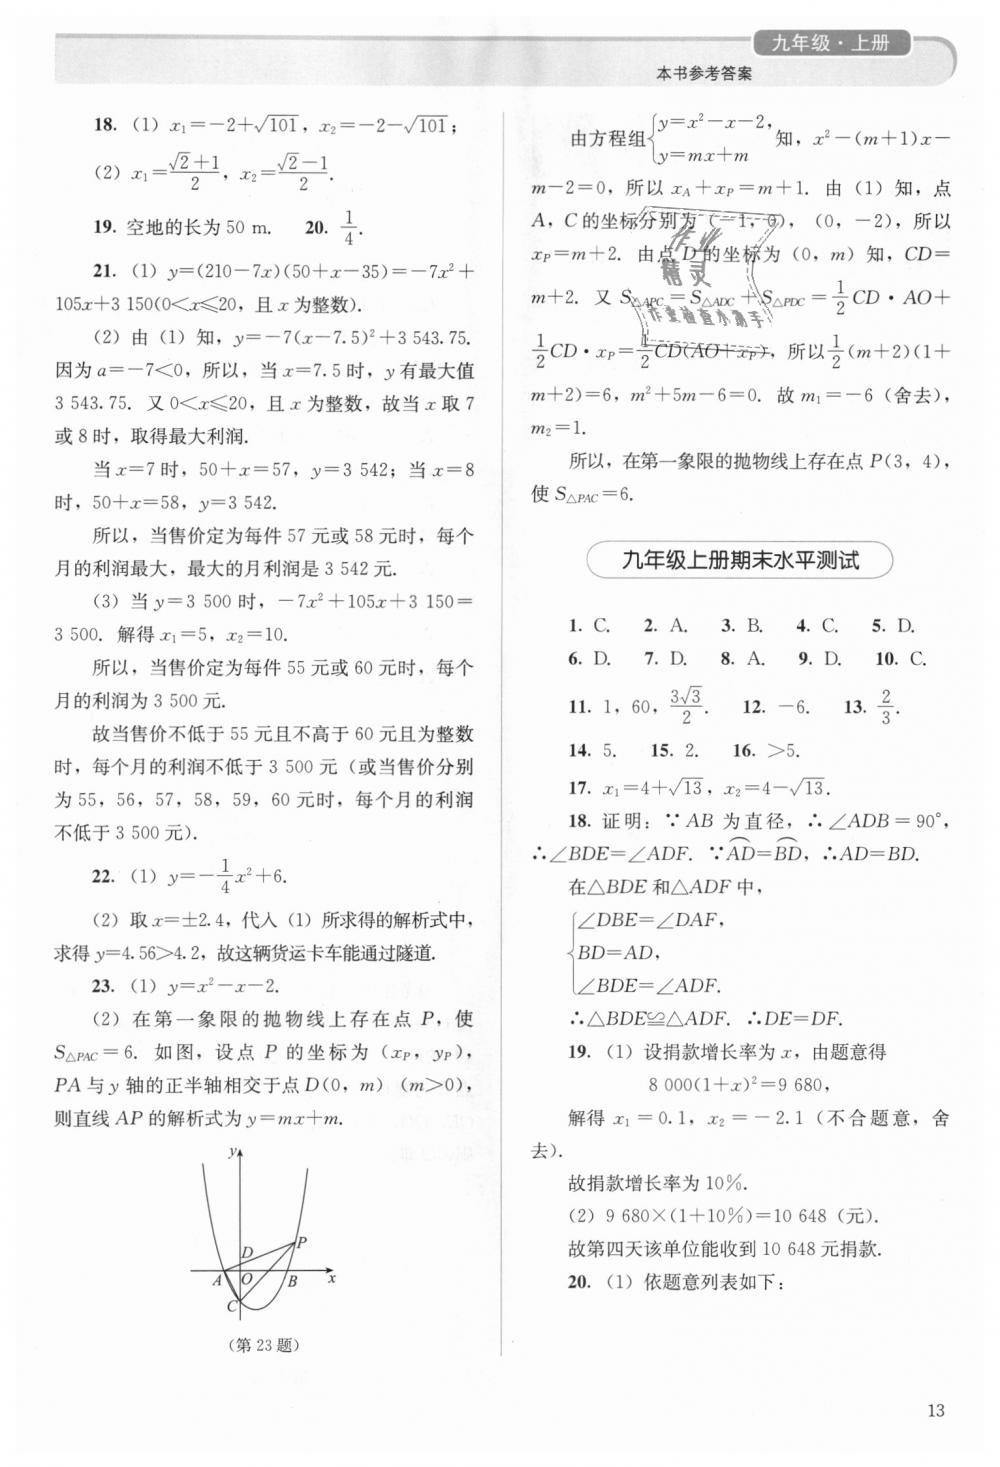 九年级·上册
本书参考答案
18. (1) x₁=-2+√101, x₂=-2-√101;
(2) x₁=(√2+1)/2, x₂=(√2-1)/2.
19. 空地的长为 50 m. 20. 1/4.
21. (1) y=(210-7x)(50+x-35)=-7x²+
105x+3 150(0<x≤20, 且 x 为整数).
(2) 由 (1) 知, y=-7(x-7.5)²+3 543.75.
因为 a=-7<0, 所以, 当 x=7.5 时, y 有最大值
3 543.75. 又 0<x≤20, 且 x 为整数, 故当 x 取 7
或 8 时, 取得最大利润.
当 x=7 时, 50+x=57, y=3 542; 当 x=8
时, 50+x=58, y=3 542.
所以, 当售价定为每件 57 元或 58 元时, 每个
月的利润最大, 最大的月利润是 3 542 元.
(3) 当 y=3 500 时, -7x²+105x+3 150=
3 500. 解得 x₁=5, x₂=10.
所以, 当售价定为每件 55 元或 60 元时, 每个
月的利润为 3 500 元.
故当售价不低于 55 元且不高于 60 元且为整数
时, 每个月的利润不低于 3 500 元 (或当售价分别
为 55, 56, 57, 58, 59, 60 元时, 每个月的利润
不低于 3 500 元).
22. (1) y=-1/4x²+6.
(2) 取 x=±2.4, 代入 (1) 所求得的解析式中,
求得 y=4.56>4.2, 故这辆货运卡车能通过隧道.
23. (1) y=x²-x-2.
(2) 在第一象限的抛物线上存在点 P, 使
S△PAC=6. 如图, 设点 P 的坐标为 (xP, yP),
PA 与 y 轴的正半轴相交于点 D(0, m) (m>0),
则直线 AP 的解析式为 y=mx+m.
y
D
P
A
O
B
x
C
(第 23 题)
由方程组{y=x²-x-2, y=mx+m 知, x²-(m+1)x-
m-2=0, 所以 xA+xP=m+1. 由 (1) 知, 点
A, C 的坐标分别为 (-1, 0), (0, -2), 所以
xP=m+2. 由点 D 的坐标为 (0, m) 知, CD=
m+2. 又 S△APC=S△ADC+S△PDC=1/2CD·AO+
1/2CD·xP=1/2CD(AO+xP), 所以1/2(m+2)(1+
m+2)=6, m²+5m-6=0. 故 m₁=-6 (舍去),
m₂=1.
所以, 在第一象限的抛物线上存在点 P(3, 4),
使 S△PAC=6.
作业
精灵
作业检查小助手
九年级上册期末水平测试
1. C. 2. A. 3. B. 4. C. 5. D.
6. D. 7. D. 8. A. 9. D. 10. C.
11. 1, 60, 3√3/2. 12. -6. 13. 2/3.
14. 5. 15. 2. 16. >5.
17. x₁=4+√13, x₂=4-√13.
18. 证明: ∵ AB 为直径, ∴∠ADB=90°,
∴∠BDE=∠ADF. ∵A͡D=B͡D, ∴AD=BD.
在△BDE 和△ADF 中,
{∠DBE=∠DAF,
BD=AD,
∠BDE=∠ADF.
∴△BDE≌△ADF. ∴DE=DF.
19. (1) 设捐款增长率为 x, 由题意得
8 000(1+x)²=9 680,
解得 x₁=0.1, x₂=-2.1 (不合题意, 舍
去).
故捐款增长率为 10%.
(2) 9 680×(1+10%)=10 648 (元).
故第四天该单位能收到 10 648 元捐款.
20. (1) 依题意列表如下:
13